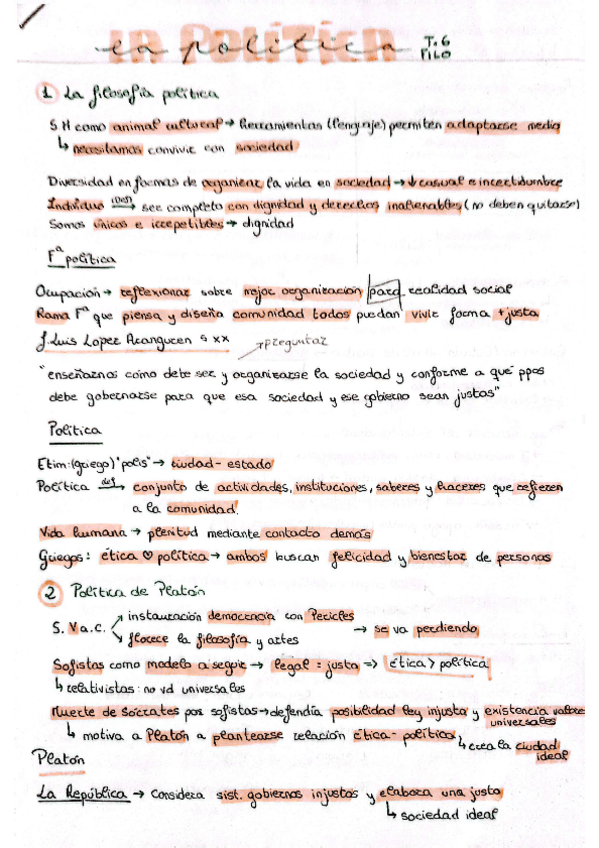 LA POLÍTICA
la política T.6
FILO
1 La filosofía política
SH como animal cultural → Herramientas (lenguaje) permiten adaptarse medio
↳ necesitamos convivir con sociedad
Diversidad en formas de organizar la vida en sociedad → ↓ casual e incertidumbre
Individuo → ser completo con dignidad y derechos inalienables (no deben quitarse)
Somos únicos e irrepetibles → dignidad
Fª política
Ocupación → reflexionar sobre mejor organización para realidad social
Rama Fª que piensa y diseña comunidad todos puedan vivir forma + justa
J. Luis Lopez Arangucen s XX → preguntar
"enseñarnos cómo debe ser y organizarse la sociedad y conforme a qué ppos
debe gobernarse para que esa sociedad y ese gobierno sean justos"
Política
Etim: (griego) "polis" → ciudad-estado
Política def→ conjunto de actividades, instituciones, saberes y haceres que refieren
a la comunidad
Vida humana → plenitud mediante contacto demás
Griegos: ética ♡ política → ambos buscan felicidad y bienestar de personas
2 Política de Platón
↗ instauración democracia con Pericles
S. V a.C. → se va perdiendo
↘ florece la filosofía y artes
Sofistas como modelo a seguir → legal = justa => ética > política
↳ relativistas: no vd universales
Muerte de Sócrates por sofistas → defendía posibilidad ley injusta y existencia valores
universales
↳ motiva a Platón a plantearse relación ética-política
↳ crea la ciudad
ideal
Platón
La República → considera sist. gobiernos injustos y elabora una justa
↳ sociedad ideal